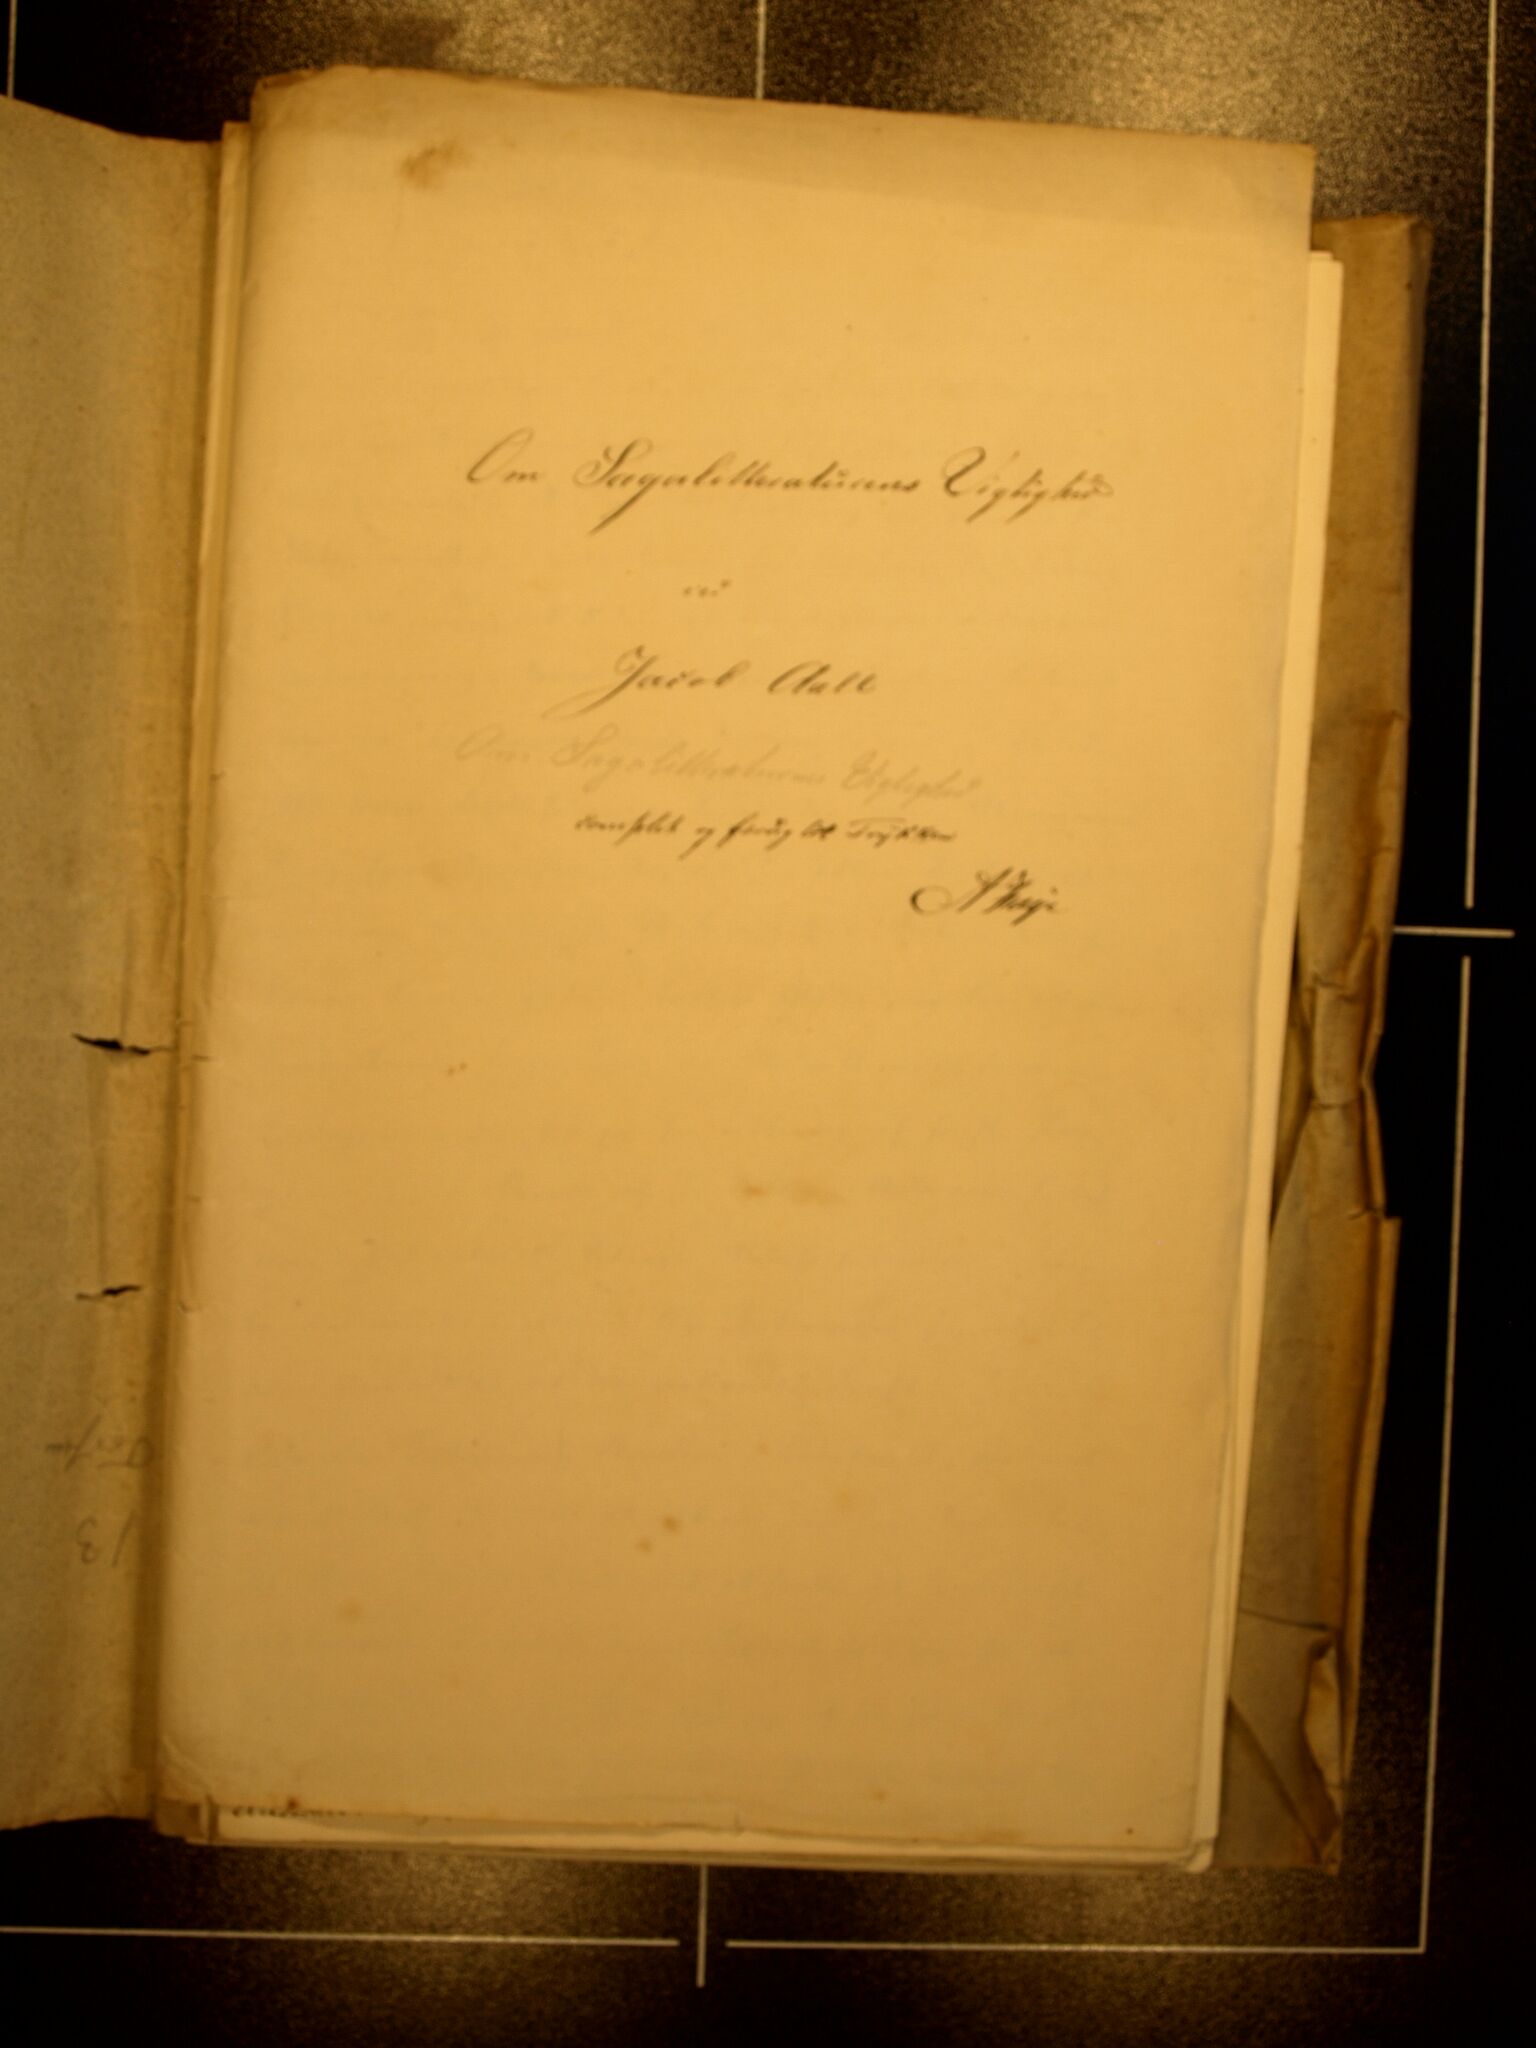 Om Sagalitteraturens Vigtighed
ved
Jacob Aall
Om Sagalitteraturens Vigtighed
complet og færdig til Trykken